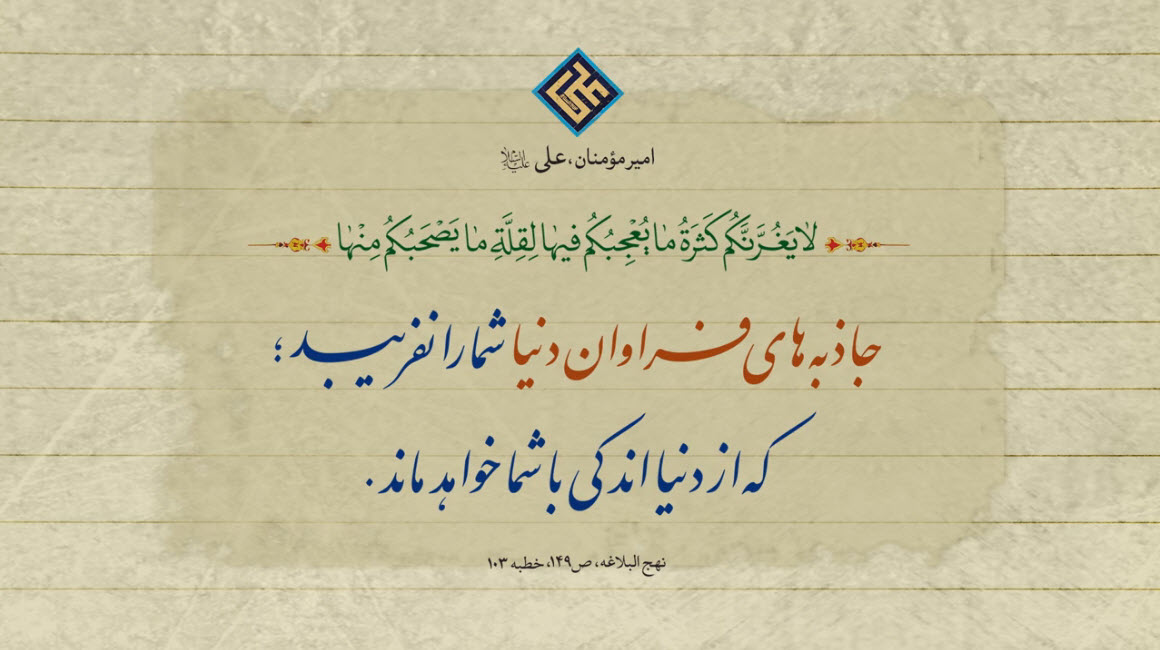 علی
امیرمؤمنان، علی علیه‌السلام
لایَغُرَّنَّکُم کَثرَةُ ما یُعْجِبُکُم فیها لِقِلَّةِ ما یَصْحَبُکُم مِنْها
جاذبه‌های فراوان دنیا شما را نفریبد؛
که از دنیا اندکی با شما خواهد ماند.
نهج البلاغه، ص۱۴۹، خطبه ۱۰۳